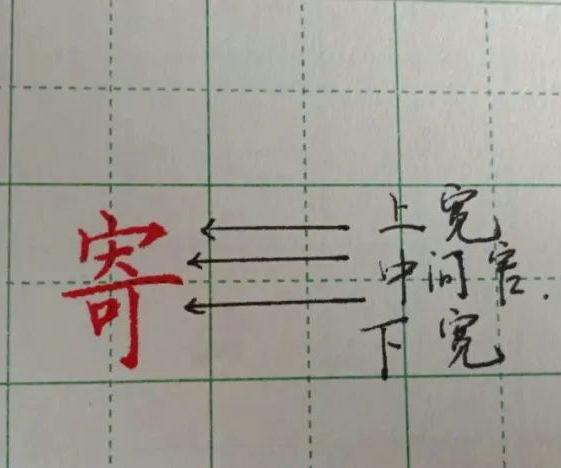 寄
上宽
中间窄.
下宽